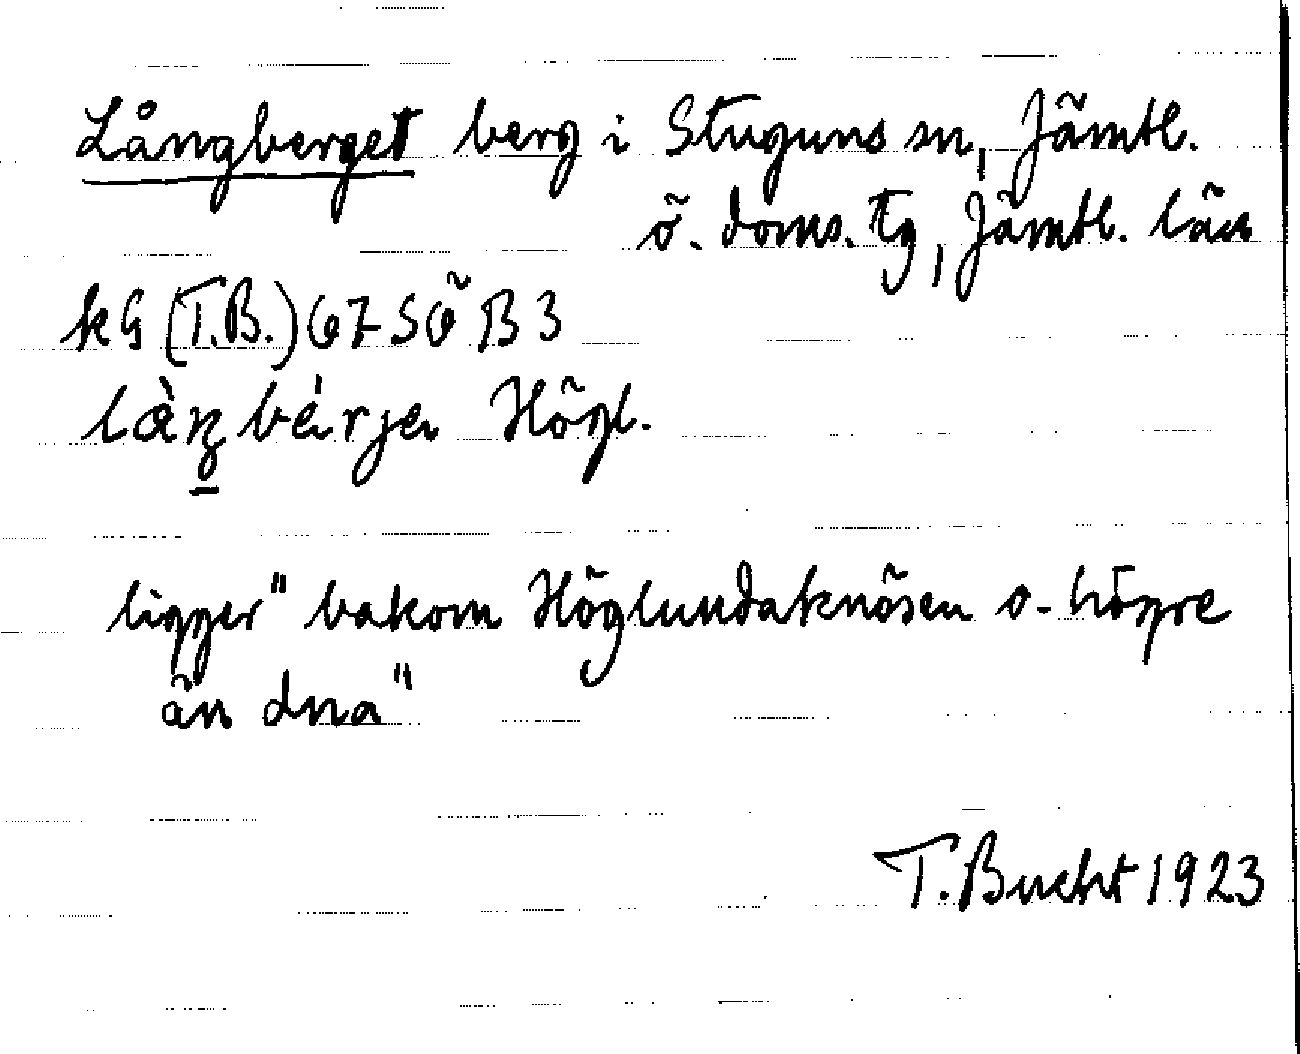 Långberget berg i Stuguns sn, Jämtl.
ö. doms. tg, Jämtl. län
kG (T.B.) 67 SÖ B 3
bérja Högl.
ligger "bakom Höglundaknösen o. högre
än dna"
T. Bucht 1923